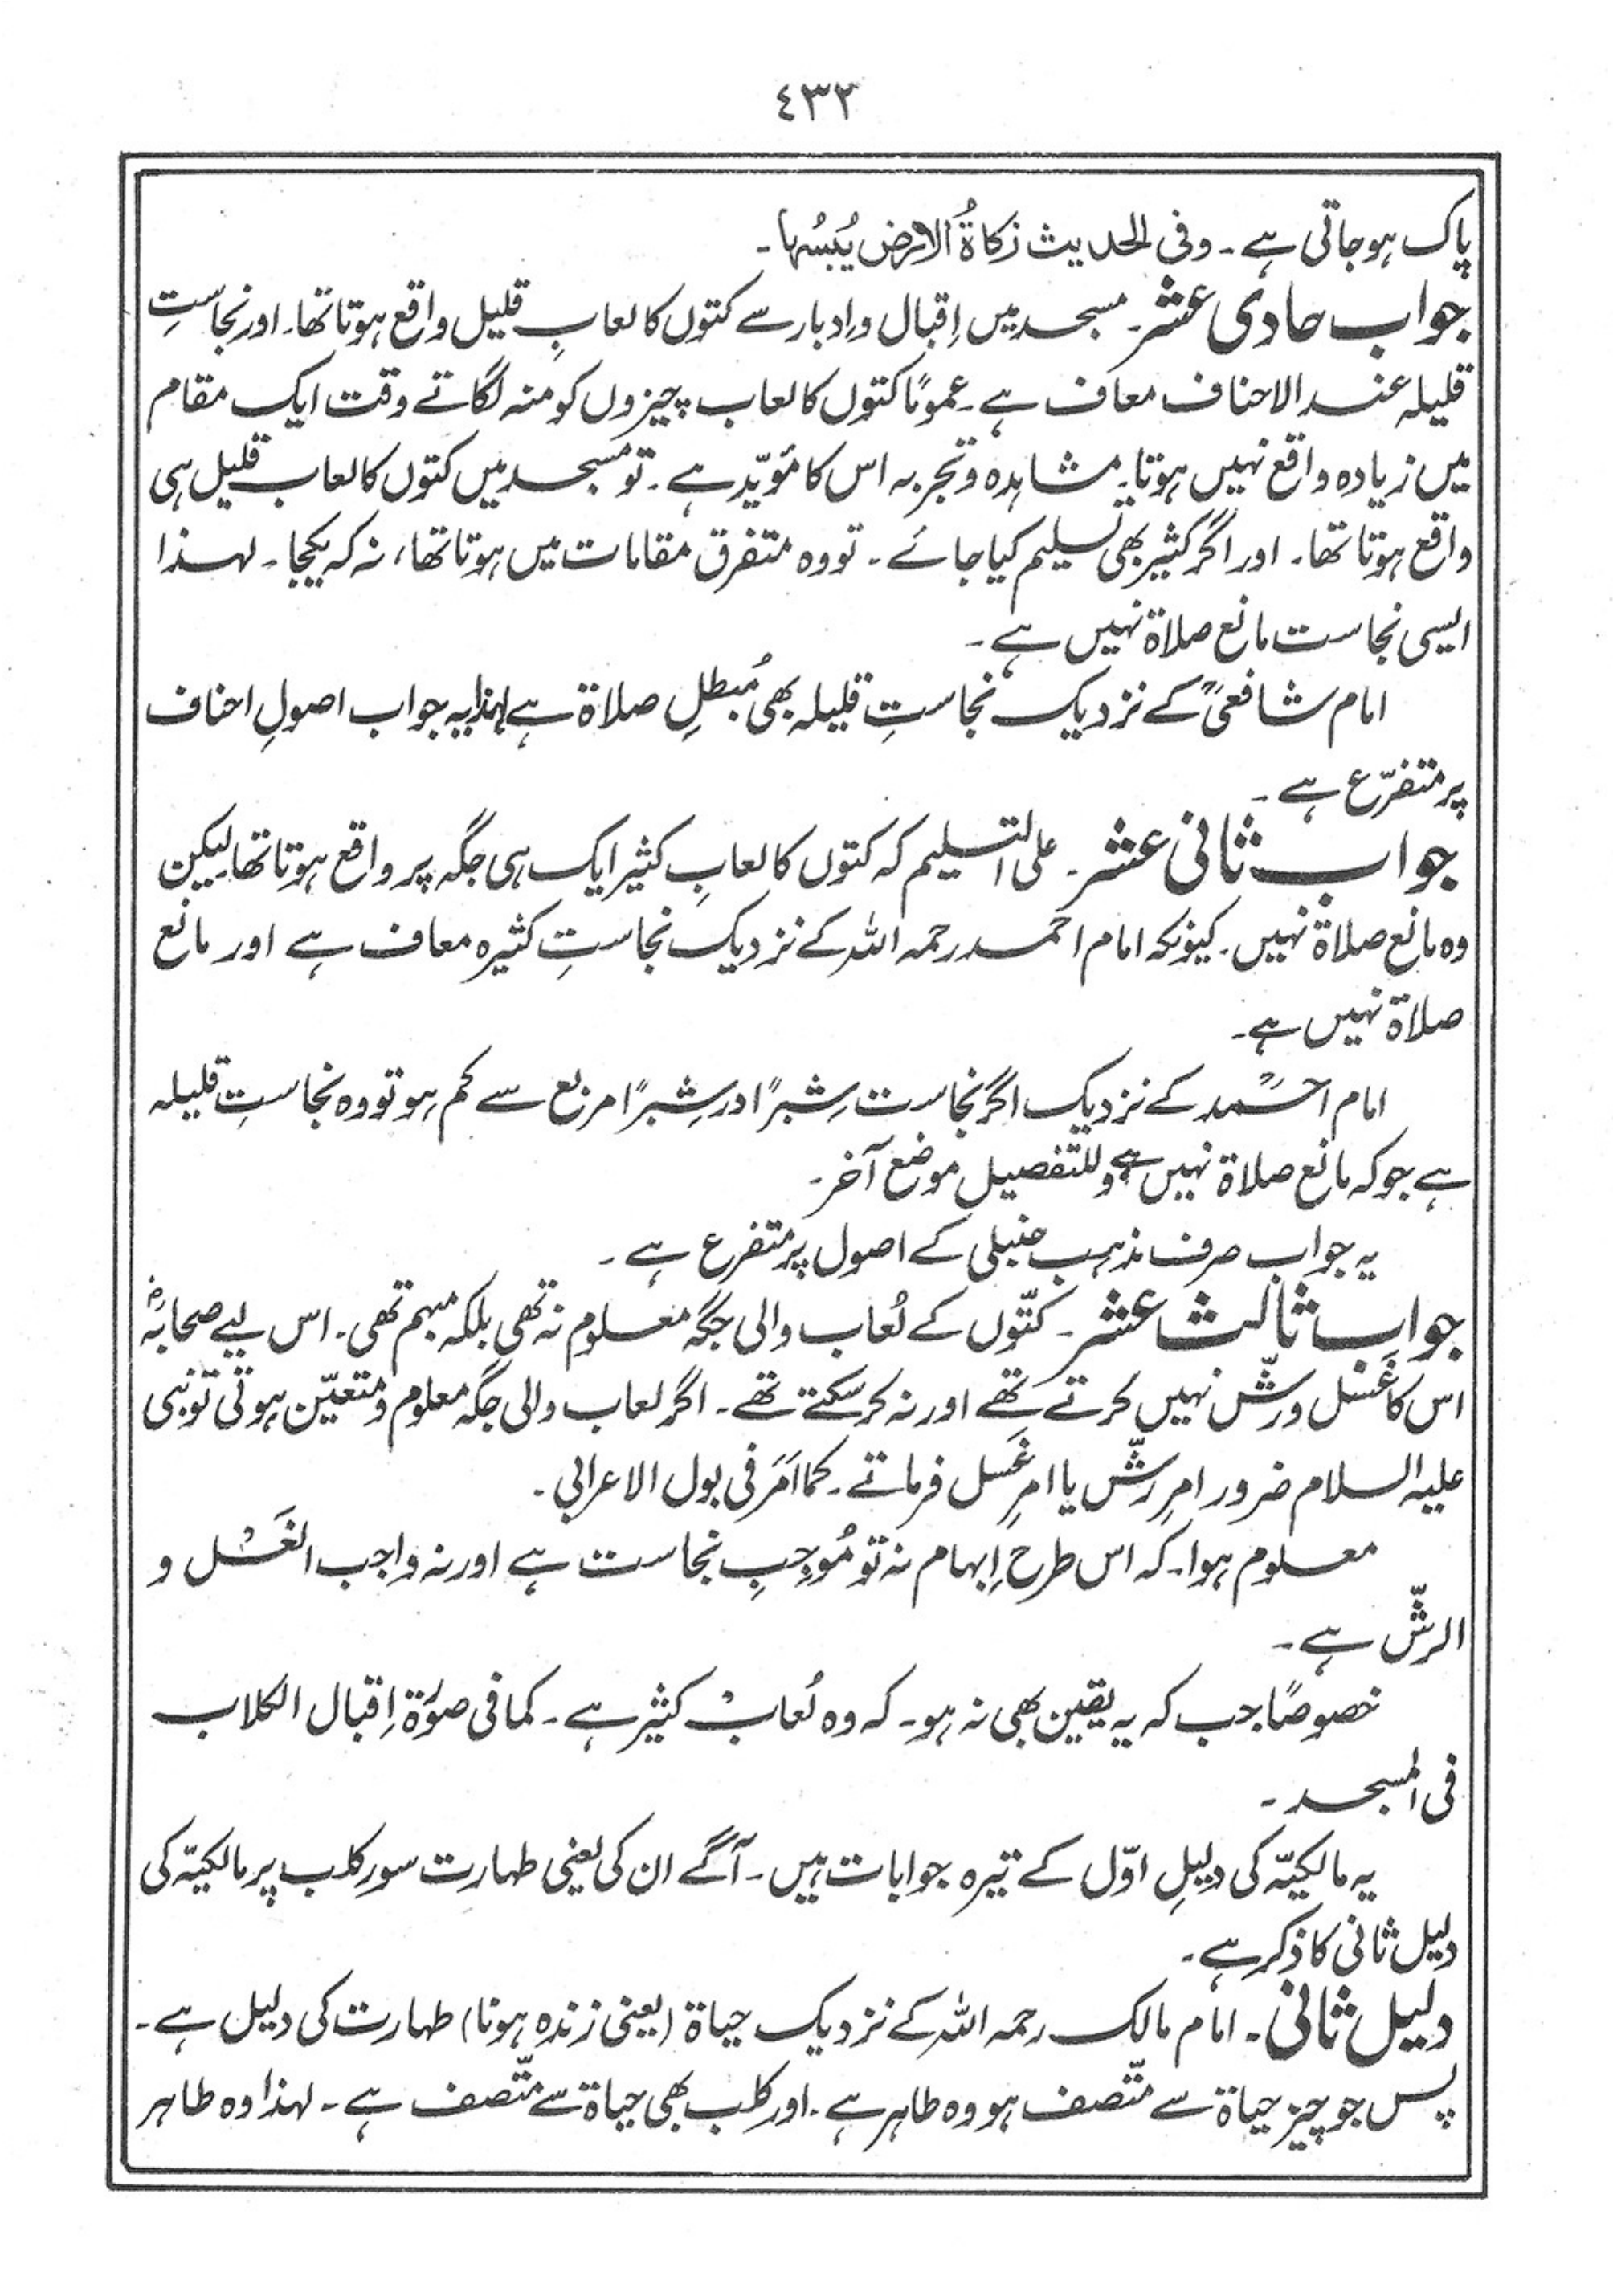 ٤٣٢
پاک ہوجاتی ہے ۔ وفی الحدیث زکاۃُ الارض یُبسُہا ۔
جواب حادی عشر ۔ مسجد میں اِقبال واِدبار سے کتوں کا لعابِ قلیل واقع ہوتا تھا۔ اور نجاستِ
قلیلہ عند الاحناف معاف ہے ۔ عمومًا کتوں کا لعاب چیزوں کو منہ لگاتے وقت ایک مقام
میں زیادہ واقع نہیں ہوتا۔ مشاہدہ وتجربہ اس کا مؤیّد ہے ۔ تو مسجد میں کتوں کا لعاب قلیل ہی
واقع ہوتا تھا۔ اور اگر کثیر بھی تسلیم کیا جائے ۔ تو وہ متفرق مقامات میں ہوتا تھا، نہ کہ یکجا ۔ لہذا
ایسی نجاست مانع صلاۃ نہیں ہے ۔
امام شافعیؒ کے نزدیک نجاستِ قلیلہ بھی مُبطلِ صلاۃ ہے لہذا یہ جواب اصولِ احناف
پر متفرّع ہے ۔
جواب ثانی عشر ۔ علی التسلیم کہ کتوں کا لعابِ کثیر ایک ہی جگہ پر واقع ہوتا تھا لیکن
وہ مانع صلاۃ نہیں ۔ کیونکہ امام احمد رحمہ اللہ کے نزدیک نجاستِ کثیرہ معاف ہے اور مانع
صلاۃ نہیں ہے ۔
امام احمدؒ کے نزدیک اگر نجاست شِبرًا در شِبرًا مربع سے کم ہو تو وہ نجاستِ قلیلہ
ہے جو کہ مانع صلاۃ نہیں ہے وللتفصیل موضع آخر ۔
یہ جواب صرف مذہب حنبلی کے اصول پر متفرع ہے ۔
جواب ثالث عشر ۔ کتّوں کے لُعاب والی جگہ معلوم نہ تھی بلکہ مبہم تھی ۔ اس لیے صحابہؓ
اس کا غَسل ورشّ نہیں کرتے تھے اور نہ کر سکتے تھے ۔ اگر لعاب والی جگہ معلوم و متعیّن ہوتی تو نبی
علیہ السلام ضرور امرِ رشّ یا امرِ غَسل فرماتے ۔ کما اَمَرَ فی بول الاعرابی ۔
معلوم ہوا ۔ کہ اس طرح اِبہام نہ تو مُوجِبِ نجاست ہے اور نہ واجب الغَسْل و
الرشّ ہے ۔
خصوصًا جب کہ یہ یقین بھی نہ ہو ۔ کہ وہ لُعابْ کثیر ہے ۔ کما فی صورۃ اِقبال الکلاب
فی المسجد ۔
یہ مالکیّہ کی دلیلِ اوّل کے تیرہ جوابات ہیں ۔ آگے ان کی یعنی طہارت سور کلب پر مالکیّہ کی
دلیل ثانی کا ذکر ہے ۔
دلیل ثانی ۔ امام مالک رحمہ اللہ کے نزدیک حیاۃ (یعنی زندہ ہونا) طہارت کی دلیل ہے ۔
پس جو چیز حیاۃ سے متّصف ہو وہ طاہر ہے ۔ اور کلب بھی حیاۃ سے متّصف ہے ۔ لہذا وہ طاہر